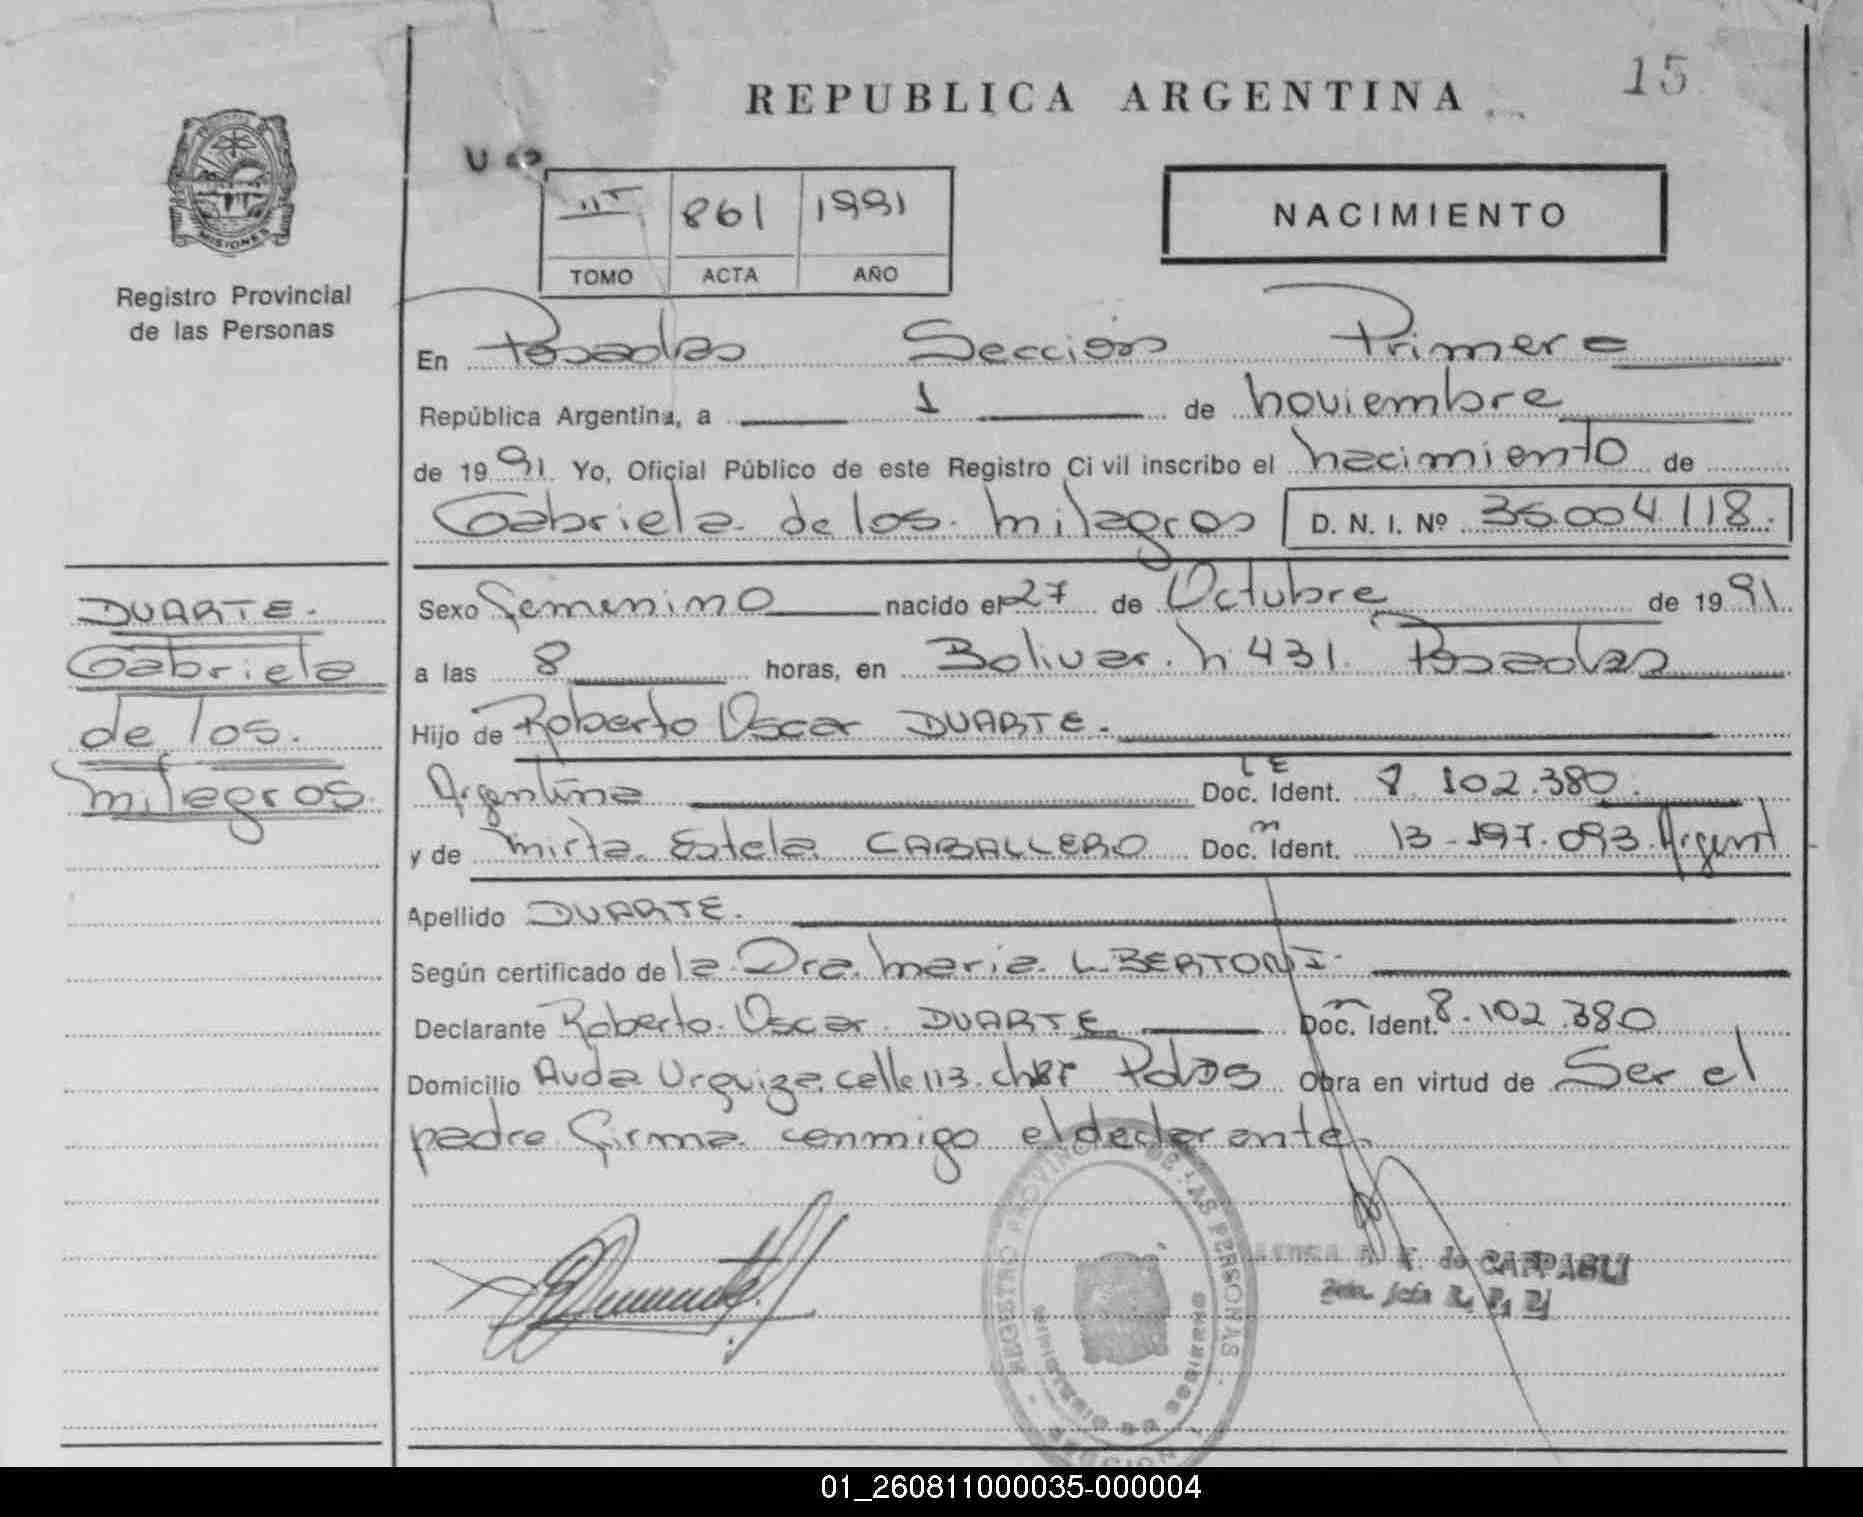 15
REPUBLICA ARGENTINA
MISIONES
Registro Provincial
de las Personas
III 861 1991
TOMO ACTA AÑO
NACIMIENTO
En Posadas Sección Primera
República Argentina, a 1 de noviembre
de 1991 Yo, Oficial Público de este Registro Civil inscribo el nacimiento de
Gabriela de los milagros D. N. I. Nº 36.004.118.
DUARTE.
Gabriela
de los.
milagros.
Sexo femenino nacido el 27 de Octubre de 1991
a las 8 horas, en Bolivar. n 431. Posadas
Hijo de Roberto Oscar DUARTE.
Argentina L E Doc. Ident. 8.102.380.
y de mirta. Estela. CABALLERO Doc. Ident. 13-197.093. Argent
Apellido DUARTE.
Según certificado de la Dra. maria. L. BERTONI-
Declarante Roberto. Oscar. DUARTE Doc. Ident. 8.102.380
Domicilio Avda Urquiza. calle 113. Pdas Obra en virtud de Ser el
padre. firma. conmigo el declarante.
REGISTRO PROVINCIAL DE LAS PERSONAS
de CAPPAGLI
01_260811000035-000004